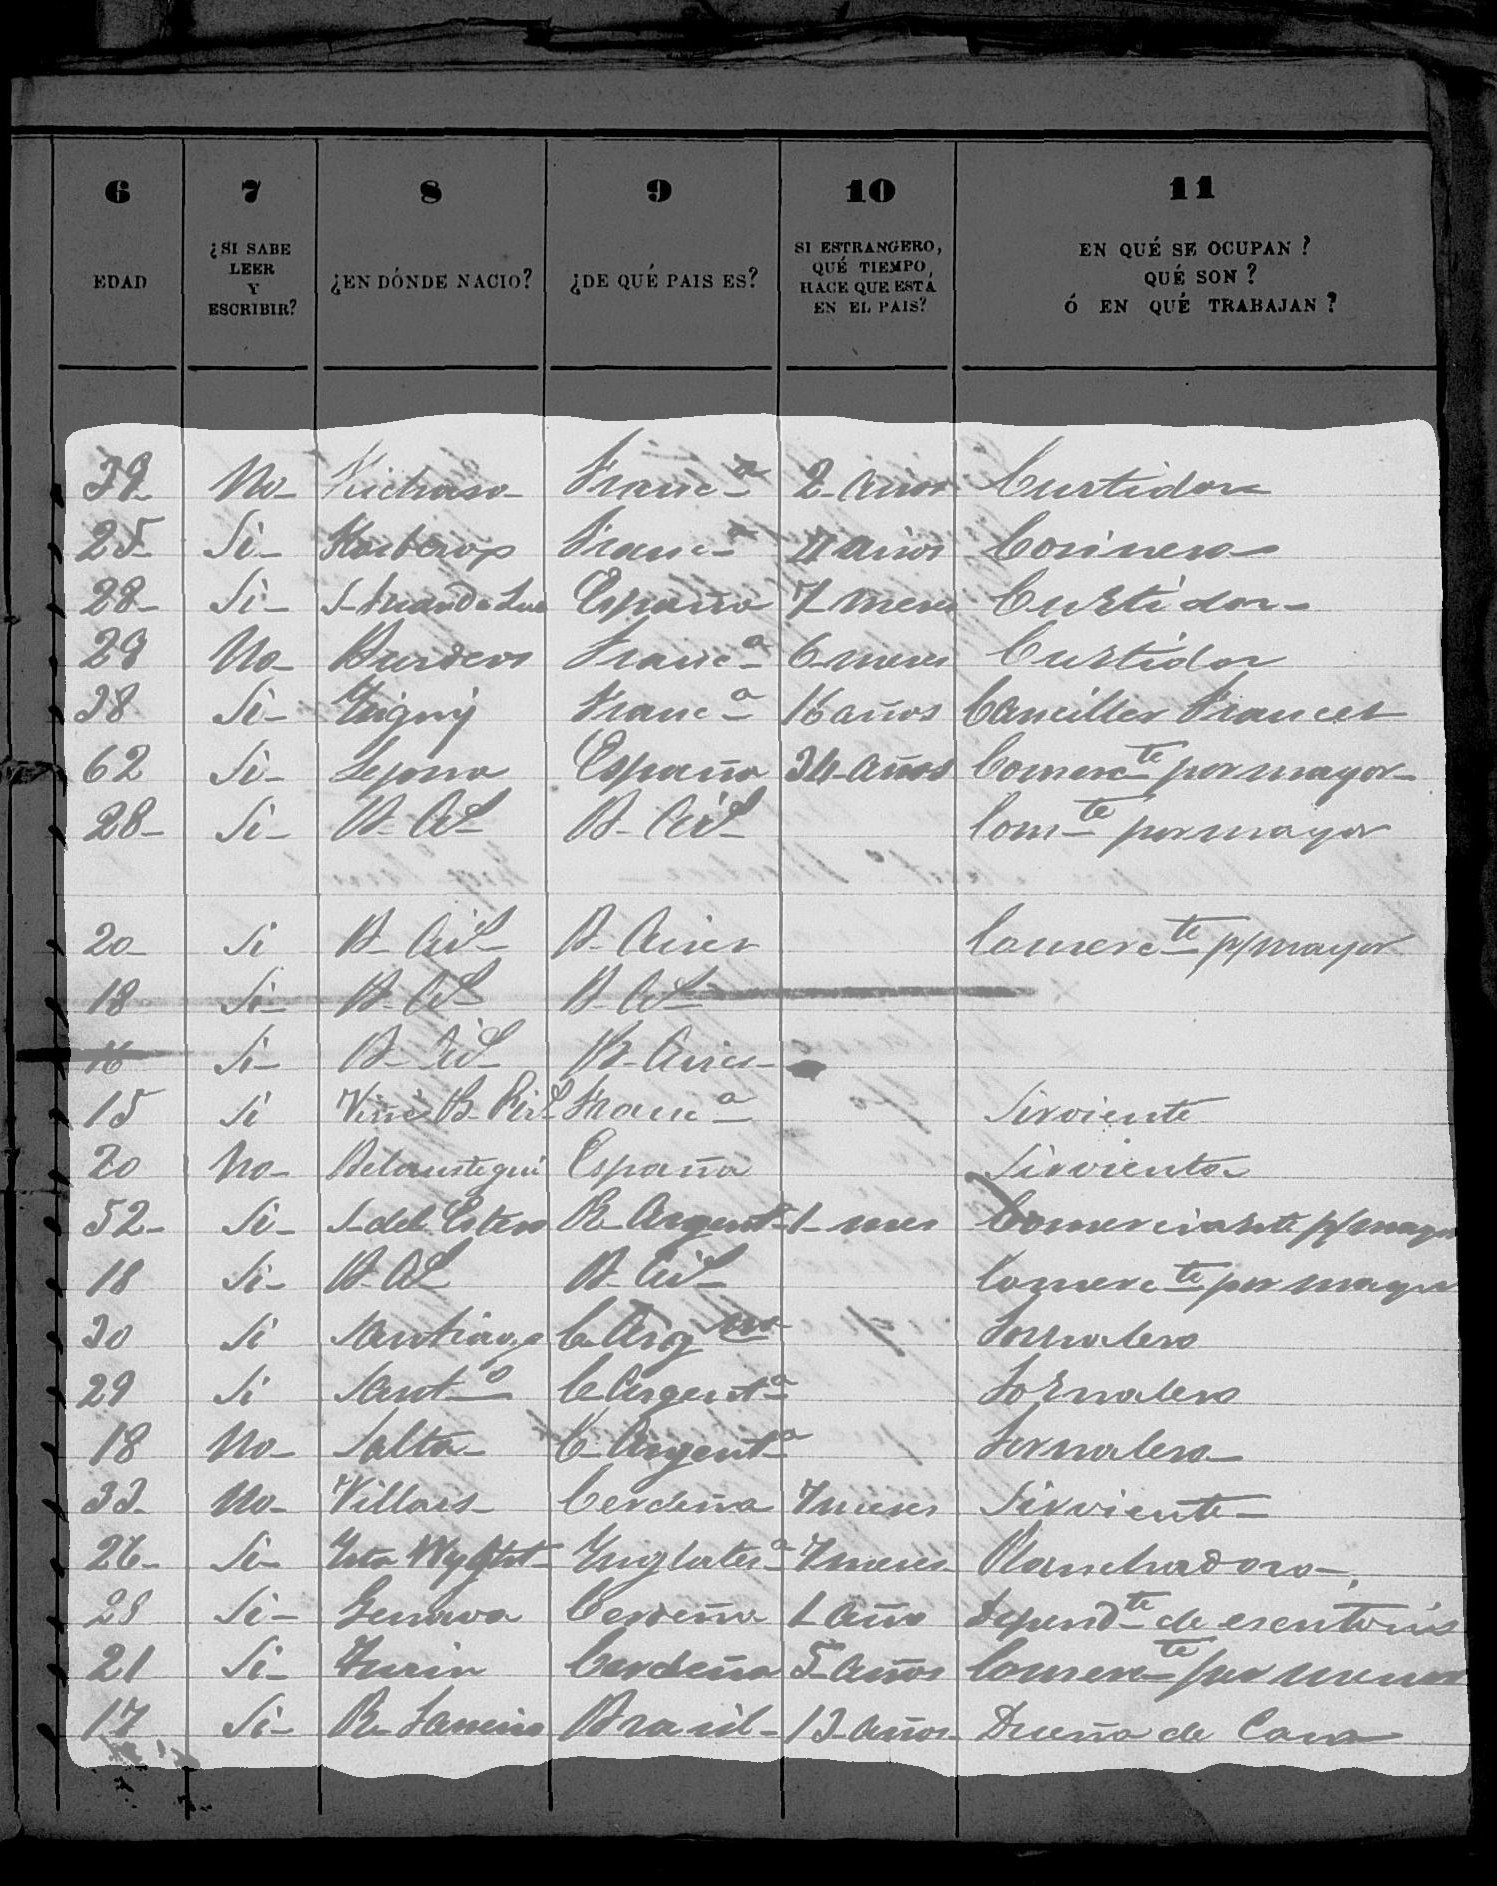 6 7 8 9 10 11
EDAD ¿SI SABE LEER Y ESCRIBIR? ¿EN DÓNDE NACIO? ¿DE QUÉ PAIS ES? SI ESTRANGERO, QUÉ TIEMPO, HACE QUE ESTÁ EN EL PAIS? EN QUÉ SE OCUPAN? QUÉ SON? Ó EN QUÉ TRABAJAN?
39 No Franc-a 2 años Curtidor
25 Si Franc-a 4 años Cosinero
28 Si S Juan de Luz España 7 meses Curtidor
29 No Burdeos Franc-a 6 meses Curtidor
38 Si Franc-a 16 años Canciller Frances
62 Si España 34 años Comerc-te por mayor
28 Si B- As B- Ais Com-te por mayor
20 Si B- Ais B- Aires Comerc-te p/mayor
18 Si B- As B- As
16 Si B- Ais B- Aires
15 Si Franc-a Sirviente
20 No Belaustegui España Sirvienta
52 Si S- del Estero R- Argent-a 1 mes Comerciante p/mayor
18 Si B- As B- Ais Comerc-te por mayor
30 Si Santiago C- Arg Jornalero
29 Si Sant-o C- Argent-a Jornalero
18 No Salta C- Argent-a Jornalero
33 No Villars Cerdeña 7 meses Sirviente
26 Si Inglater-a 7 meses Planchadora
28 Si Genova Cerdeña 1 año Depend-te de escritorio
21 Si Turin Cerdeña 5 años Comerc-te por menor
17 Si R- Janeiro Brasil 13 años Dueña de Casa